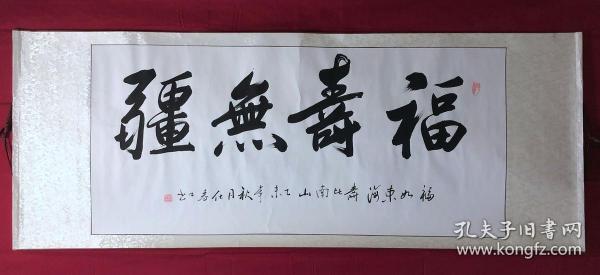 福壽無疆
福如東海壽比南山乙未年秋月任
孔夫子旧書网
www.kongfz.com